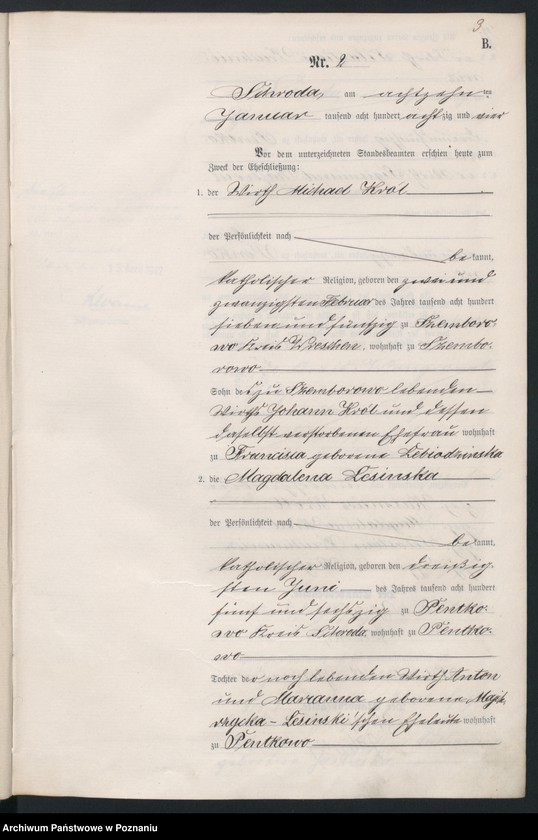 3
B.
Nr. 2
Schroda, am achtzehn ten
Januar tausend acht hundert acht zig und vier
Vor dem unterzeichneten Standesbeamten erschien heute zum
Zweck der Eheschließung:
1. der Wirth Michael Król
der Persönlichkeit nach
be kannt,
katholischer Religion, geboren den zwei und
zwanzigsten Februar des Jahres tausend acht hundert
sieben und fünfzig zu Szemboro-
wo Kreis Wreschen, wohnhaft zu Szembo-
rowo
Sohn des zu Szemborowo lebenden
Wirths Johann Król und dessen
daselbst verstorbenen Ehefrau wohnhaft
zu Francisca geborene Lebiodzinska
2. die Magdalena Lesinska
der Persönlichkeit nach
be kannt,
katholischer Religion, geboren den dreißig-
sten Juni des Jahres tausend acht hundert
fünf und sechszig zu Pentko-
wo Kreis Schroda, wohnhaft zu Pentko-
wo
Tochter der noch lebenden Wirth Anton
und Marianna geborene
Lesinski'schen Eheleute wohnhaft
zu Pentkowo
Archiwum Państwowe w Poznaniu